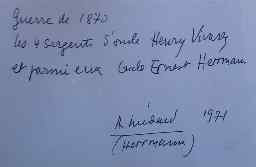 Guerre de 1870
les 4 Sergents S'oncle Henry
et parmi eux Ernest Herrmann
A. 1971
(Herrmann)